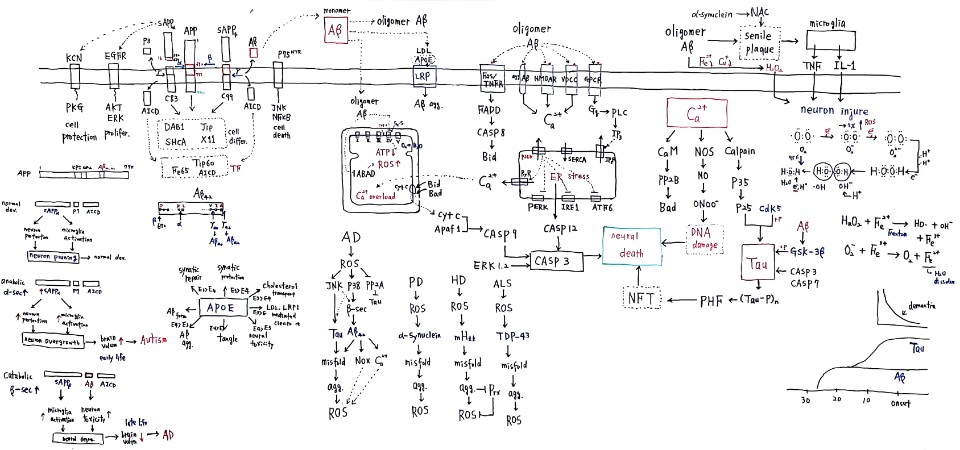 monomer
Aβ
oligomer Aβ
LDL
APOE
LRP
Aβ agg.
oligomer
Aβ
α-synuclein → NAC
oligomer
Aβ
senile
plaque
microglia
TNF IL-1
H₂O₂
neuron injure
KCN
EGFR
sAPPα
P3
APP
sAPPβ
Aβ
p75NTR
PKG
AKT
ERK
AICD
C83
C99
AICD
JNK
NFκB
cell
death
cell
protection
prolifer.
DAB1 Jip
SHCA X11
cell
differ.
Tip60
Fe65 AICD
TF
oligomer
Aβ
ATP↓
ROS↑
ABAD
Ca²⁺ overload
Bid
Bad
cyt c
Apaf1
Fas/
TNFR
Aβ
NMDAR
VDCC
GPCR
FADD
CASP 8
Bid
Ca²⁺
PLC
IP3
RyR
SERCA
ER stress
PERK IRE1 ATF6
Ca²⁺
CASP 9
CASP 12
ERK 1.2
CASP 3
neural
death
Ca²⁺
CaM NOS Calpain
PP2B NO P35
Bad ONOO⁻ P25 Cdk5
DNA
damage
+P
Aβ
GSK-3β
Tau
CASP 3
CASP 7
NFT
PHF
(Tau-P)n
ROS
H₂O₂ + Fe²⁺ → HO· + OH⁻
Fenton
+ Fe³⁺
O₂⁻ + Fe³⁺ → O₂ + Fe²⁺
APP
Aβ₄₂
normal
dev.
sAPPα P3 AICD
neuron
protection
microglia
activation
neuron pruning
normal dev.
anabolic
α-sec↑
↑sAPPα P3 AICD
↑neuron
protection
↑microglia
activation
neuron overgrowth
brain
volum ↑
Autism
early life
Catabolic
β-sec↑
sAPPβ Aβ AICD
↑microglia
activation
neuron
toxicity
late life
volum ↓
AD
synaptic
repair
synaptic
protection
Cholesterol
transport
APOE
LDL, LRP1
mediated
Aβ
agg.
tangle
neural
toxicity
AD
ROS
JNK P38 PP2A
Tau
β-sec
Tau Aβ₄₂
misfold
NOX Ca²⁺
agg.
ROS
PD
ROS
α-synuclein
misfold
agg.
ROS
HD
ROS
mHtt
misfold
agg.
Prx
ROS
ALS
ROS
TDP-43
misfold
agg.
ROS
dementia
Tau
Aβ
30 20 10 onset